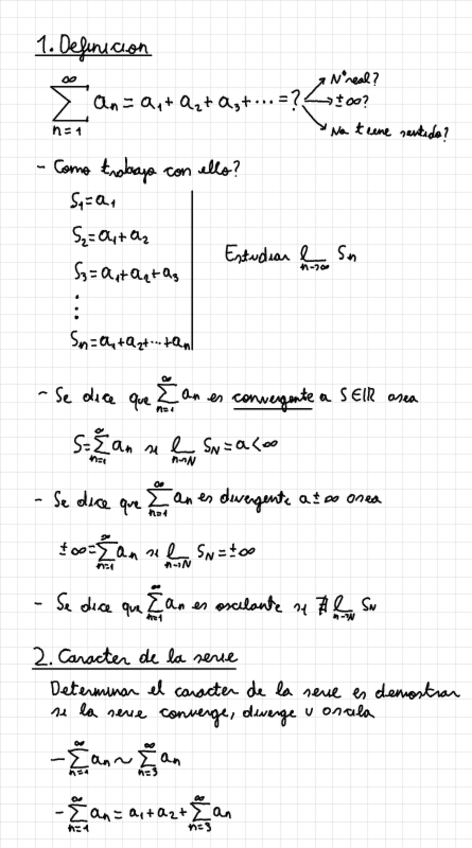 1. Definicion
∞
∑ an = a1 + a2 + a3 + ... = ? → Nº real?
n=1 → ±∞?
→ No tiene sentido?
- Como trabajo con ello?
S1 = a1
S2 = a1 + a2
S3 = a1 + a2 + a3
⋮
Sn = a1 + a2 + ... + an
Estudiar l Sn
n→∞
- Se dice que ∑ an es convergente a S∈ℝ osea
S = ∑ an si l SN = a < ∞
- Se dice que ∑ an es divergente a ±∞ osea
±∞ = ∑ an si l SN = ±∞
- Se dice que ∑ an es oscilante si ∄ l SN
2. Caracter de la serie
Determinar el caracter de la serie es demostrar
si la serie converge, diverge u oscila
- ∑ an ~ ∑ an
n=1 n=3
- ∑ an = a1 + a2 + ∑ an
n=1 n=3